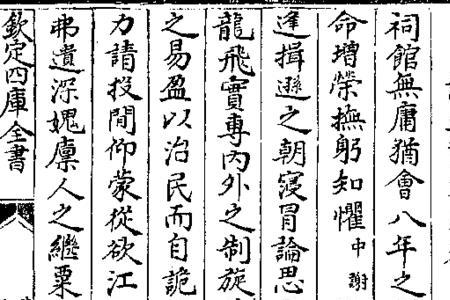 祠館無庸猶會八年之
命增榮撫躬知懼中謝
逢揖遜之朝寖冒論思
龍飛實專内外之制旋
之易盈以治民而自詭
力請投閒仰蒙從欲江
弗遺深媿廩人之繼粟
欽定四庫全書